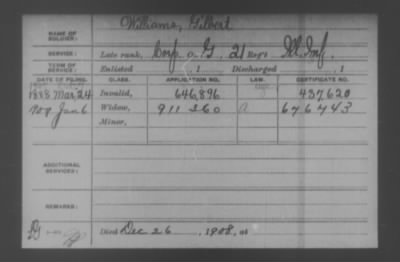 NAME OF SOLDIER: Williams, Gilbert
SERVICE: Late rank, Corp. Co. G, 21 Reg't Ill. Inf.
TERM OF SERVICE: Enlisted , 1 Discharged , 1
DATE OF FILING. CLASS. APPLICATION NO. LAW. CERTIFICATE NO.
1888 Mar, 24 Invalid, 646,896 437620
1909 Jan 6 Widow, 911260 A 676743
Minor,
ADDITIONAL SERVICES:
REMARKS:
Died Dec 26, 1908, at